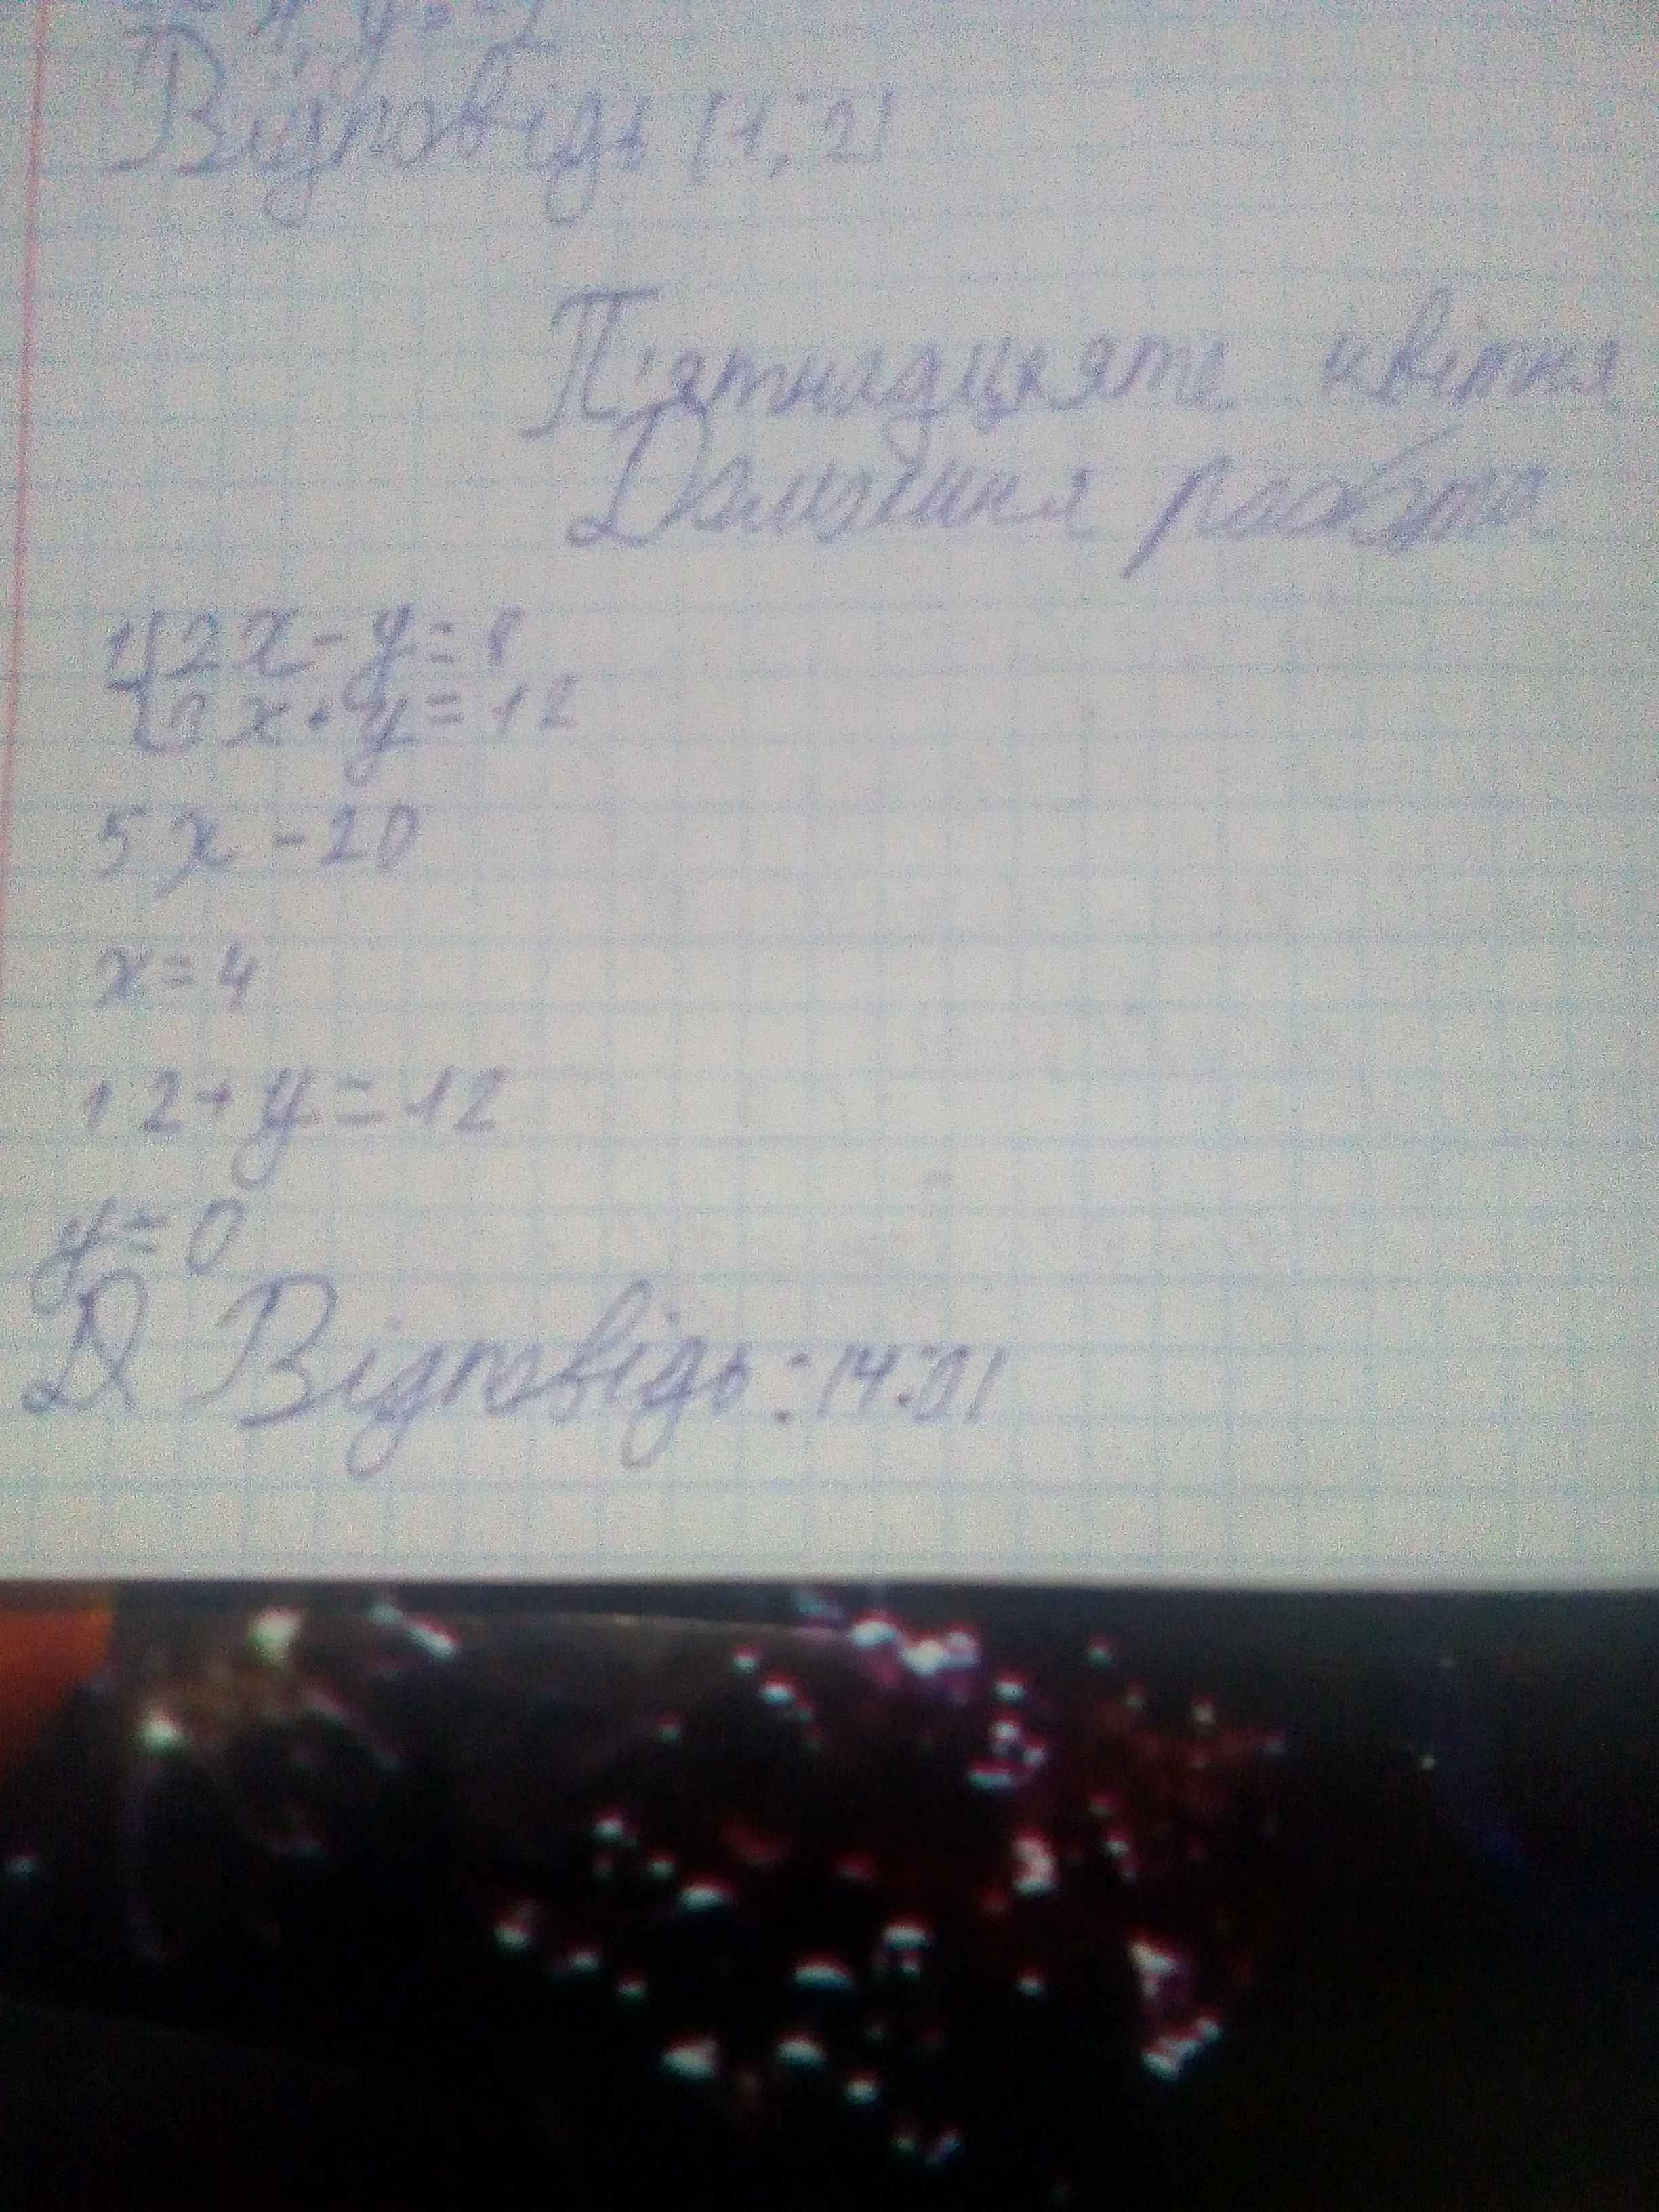 y = -2
Відповідь (1; 2)
П'ятнадцяте квітня
Домашня робота
1) { 2x - y = 8
3x + y = 12
5x - 20
x = 4
12 + y = 12
y = 0
Відповідь: (4; 0)